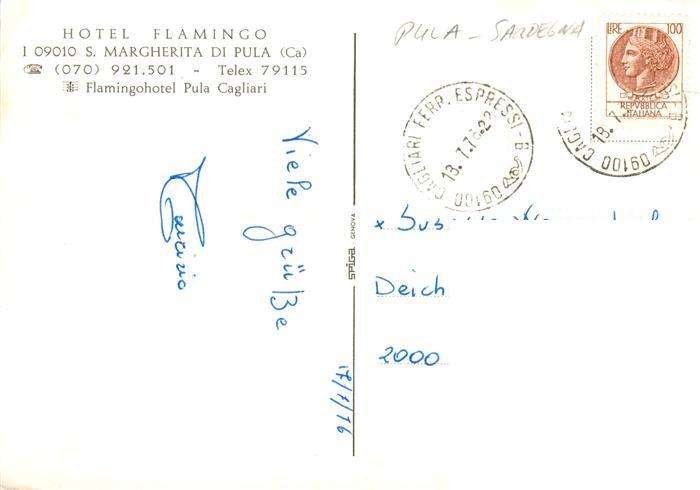 HOTEL FLAMINGO
I 09010 S. MARGHERITA DI PULA (Ca)
☎ (070) 921.501 - Telex 79115
Flamingohotel Pula Cagliari
PULA - SARDEGNA
LIRE 100
REPVBBLICA
ITALIANA
CAGLIARI FERR. ESPRESSI - B
18.7.76.22
09100
09100 CAGLI
18.7
Viele grüße
spiga GENOVA
17/7/76
Deich
2000